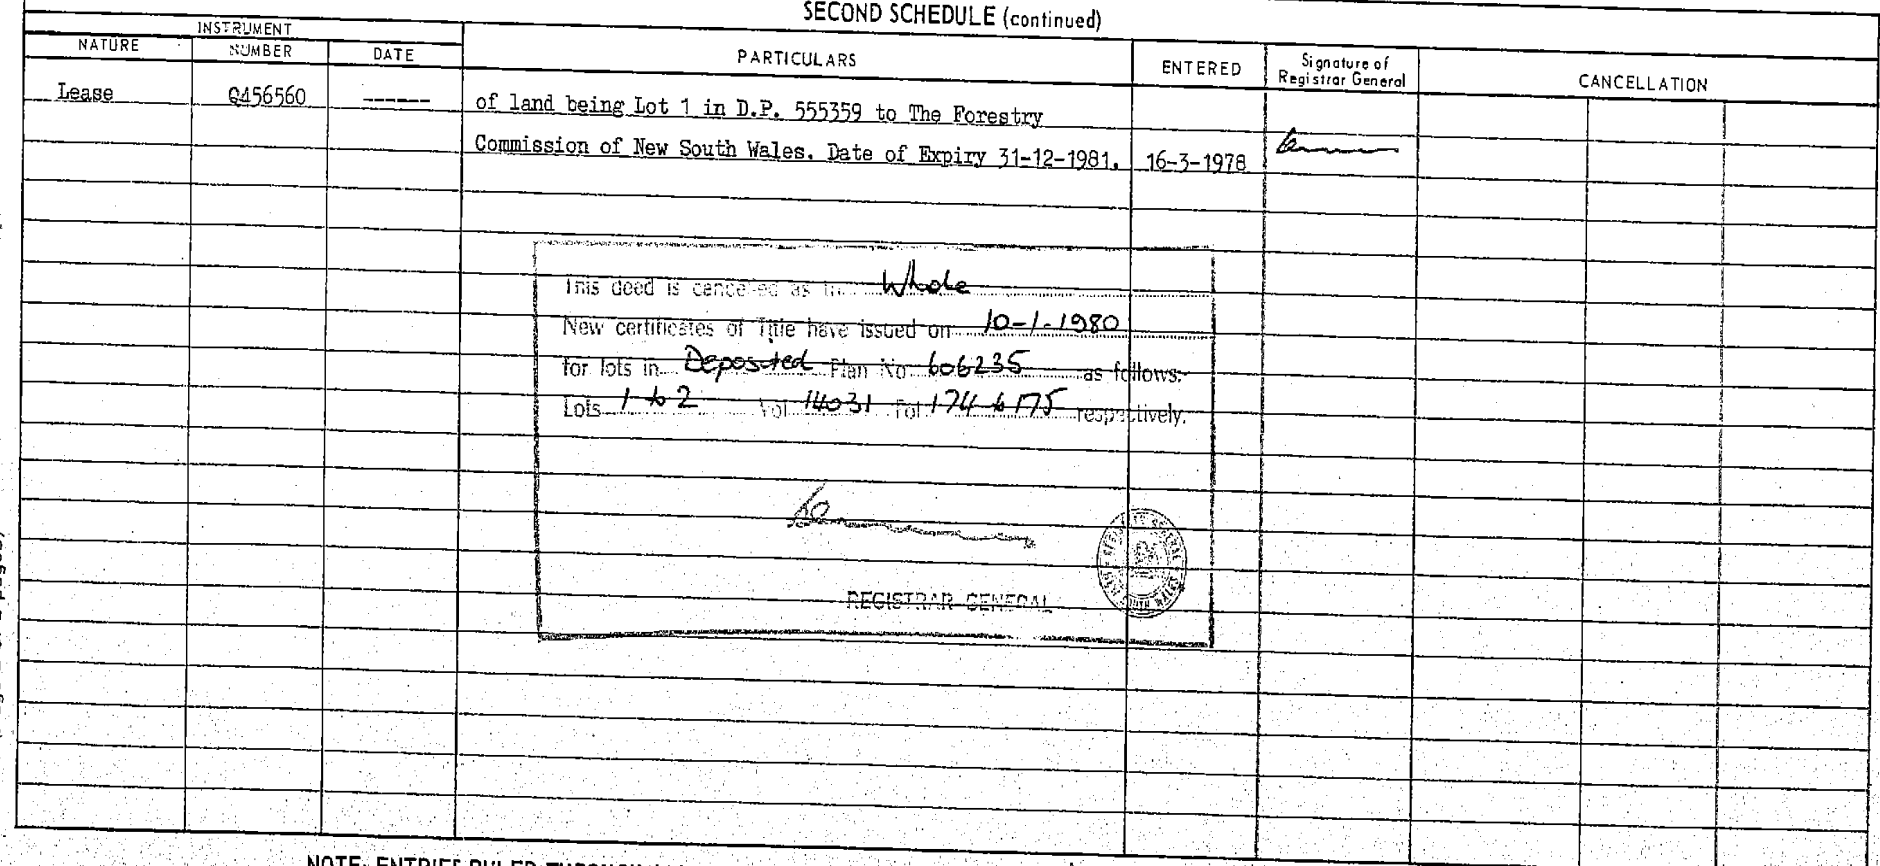 SECOND SCHEDULE (continued)
INSTRUMENT
NATURE NUMBER DATE PARTICULARS ENTERED Signature of Registrar General CANCELLATION
Lease Q456560 ------ of land being Lot 1 in D.P. 555359 to The Forestry
Commission of New South Wales. Date of Expiry 31-12-1981. 16-3-1978
This deed is cancelled as to Whole
New certificates of Title have issued on 10-1-1980
for lots in Deposited Plan No 606235 as follows:
Lots 1 to 2 Vol 14031 Fol 174 to 175 respectively.
REGISTRAR GENERAL
NOTE: ENTRIES RULED THROUGH